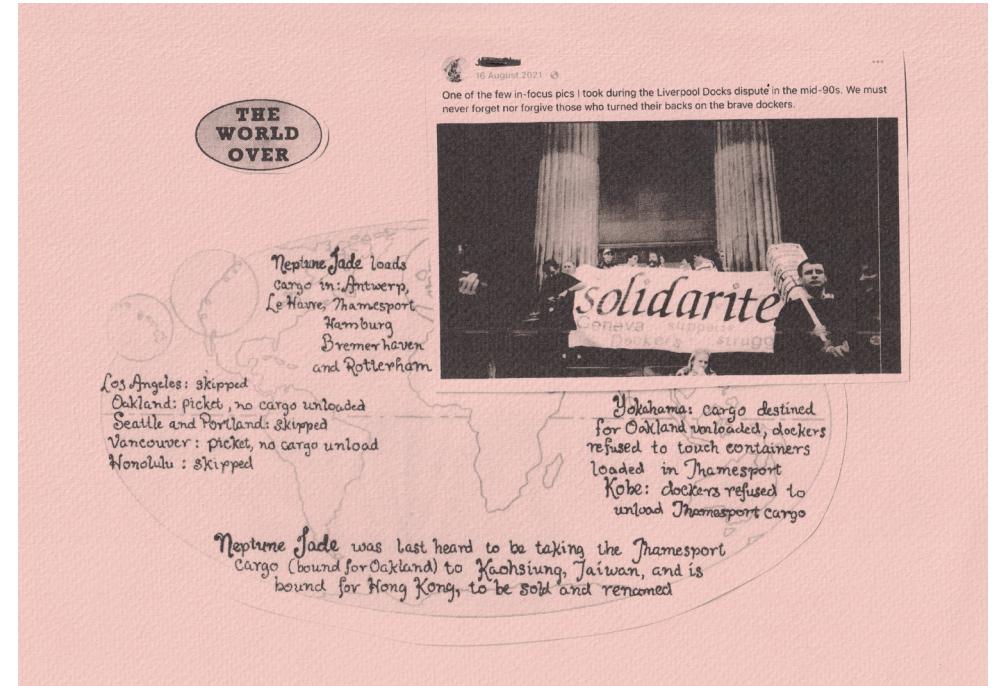 THE
WORLD
OVER
16 August 2021
One of the few in-focus pics I took during the Liverpool Docks dispute in the mid-90s. We must
never forget nor forgive those who turned their backs on the brave dockers.
solidarité
Geneva supports
Dockers strugg
Neptune Jade loads
cargo in: Antwerp,
Le Havre, Thamesport
Hamburg
Bremerhaven
and Rotterham
Los Angeles: skipped
Oakland: picket, no cargo unloaded
Seattle and Portland: skipped
Vancouver: picket, no cargo unload
Honolulu: skipped
Yokahama: cargo destined
for Oakland unloaded, dockers
refused to touch containers
loaded in Thamesport
Kobe: dockers refused to
unload Thamesport cargo
Neptune Jade was last heard to be taking the Thamesport
cargo (bound for Oakland) to Kaohsiung, Taiwan, and is
bound for Hong Kong, to be sold and renamed